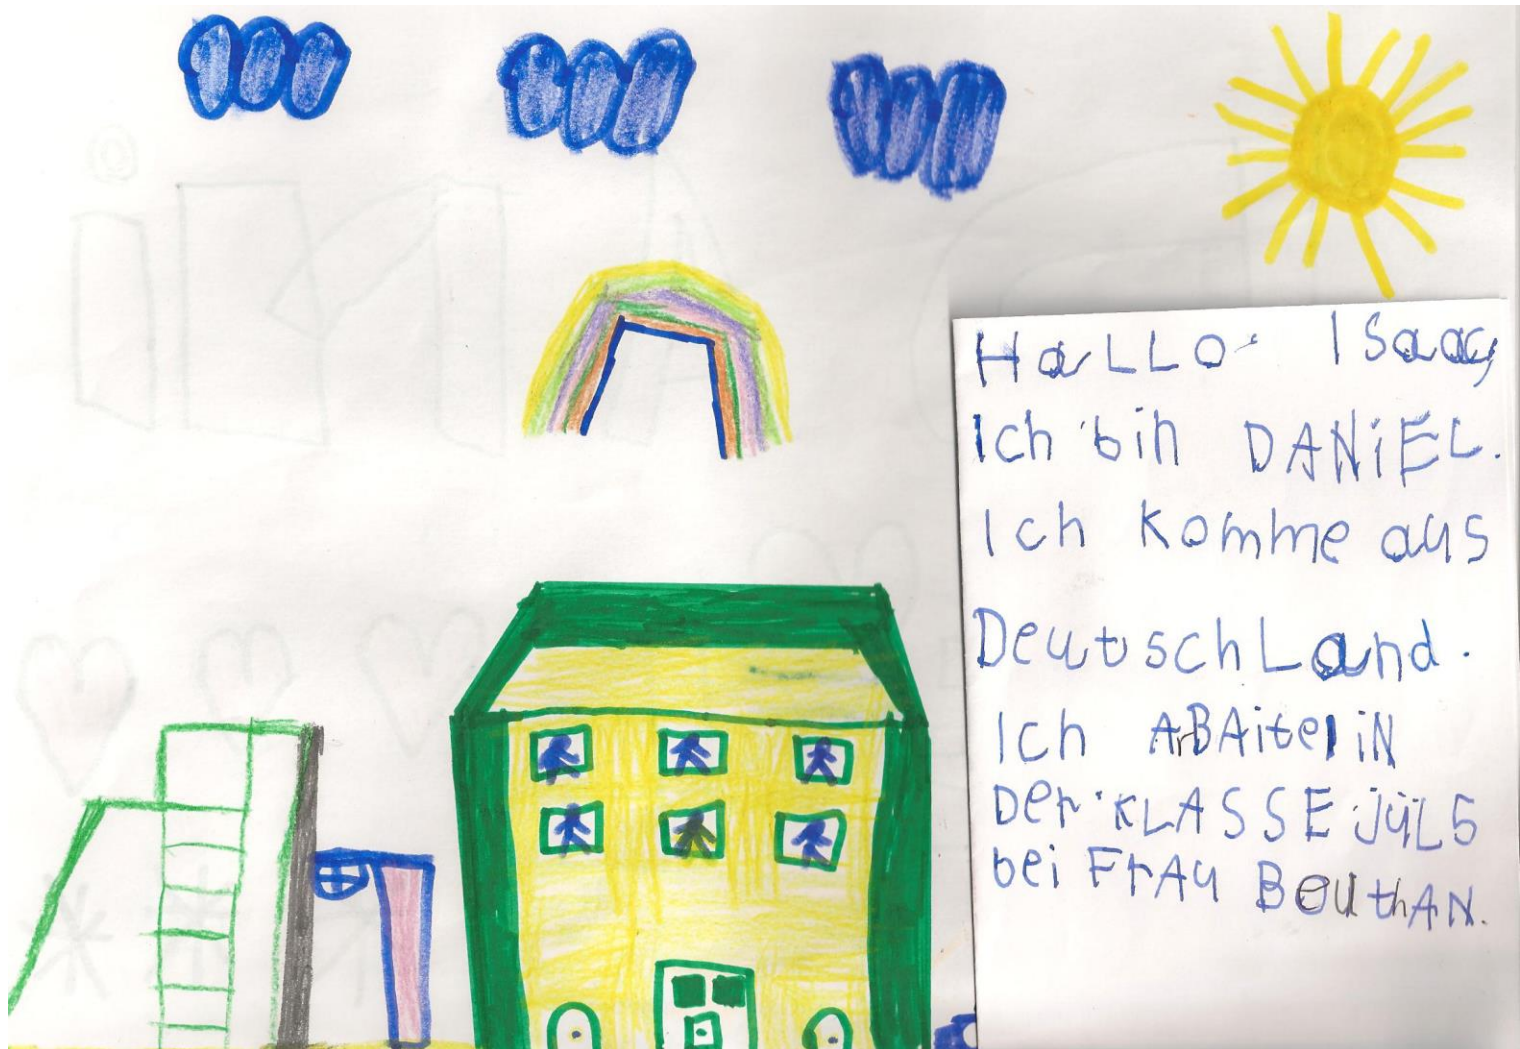 HaLLO Isaac,
Ich bin DANiEL.
Ich komme aus
DeutschLand.
Ich ArBAite iN
Der KLASSE JÜL5
bei FrAu BeuthAN.